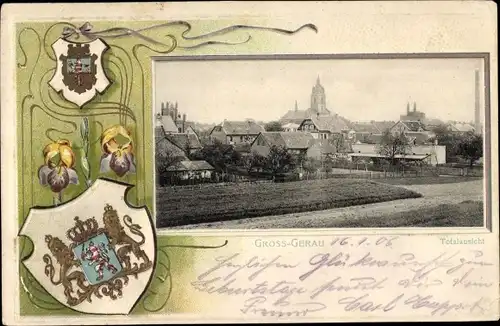 GROSS-GERAU
16.1.06
Totalansicht
Herzlichen Glückwunsch zum
Geburtstage sendet Dir Dein
Freund Carl